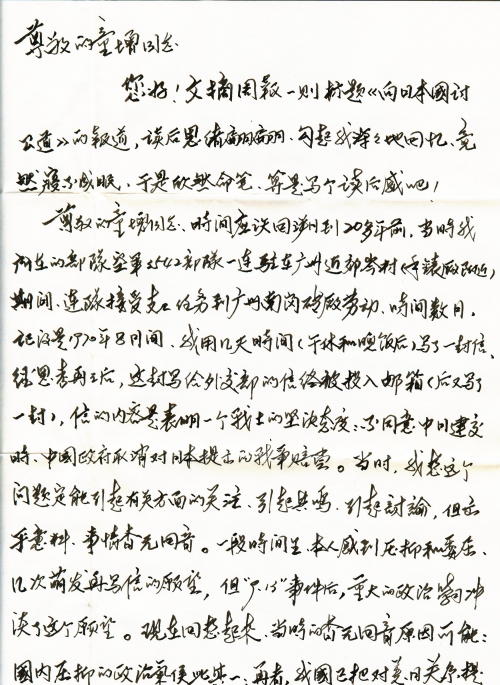 尊敬的童增同志：
您好！文摘周报一则标题《向日本國讨
公道》的報道，读后思绪翩翩，勾起我深深地回忆，竟
然寝不成眠，于是欣然命笔，算是写个读后感吧！
尊敬的童增同志，时间应该回溯到20多年前，当時我
所在的部隊 一連驻在广州近郊岑村(手錶廠附近)
期间，连隊接受支工任务到广州南岗砖廠劳动，时间数月，
记得是1970年8月间，我用几天時间(午休和晚饭后)写了一封信，
经思考再三后，这封写给外交部的信终被投入邮箱(后又写了
一封)，信的内容是表明一个戰士的坚决态度：不同意中日建交
時，中國政府取消对日本提出的戰争赔偿。当时，我想这个
问题定能引起有关方面的关注，引起共鸣，引起討論，但出
乎意料，事情杳无回音。一段时间里，本人感到压抑和委屈，
几次萌发再写信的願望，但"9.13"事件后，重大的政治 冲
淡了这个願望。现在回想起来，当時的杳无回音原因可能：
國内压抑的政治氣候此其一；再者，我國已把对美日关系提